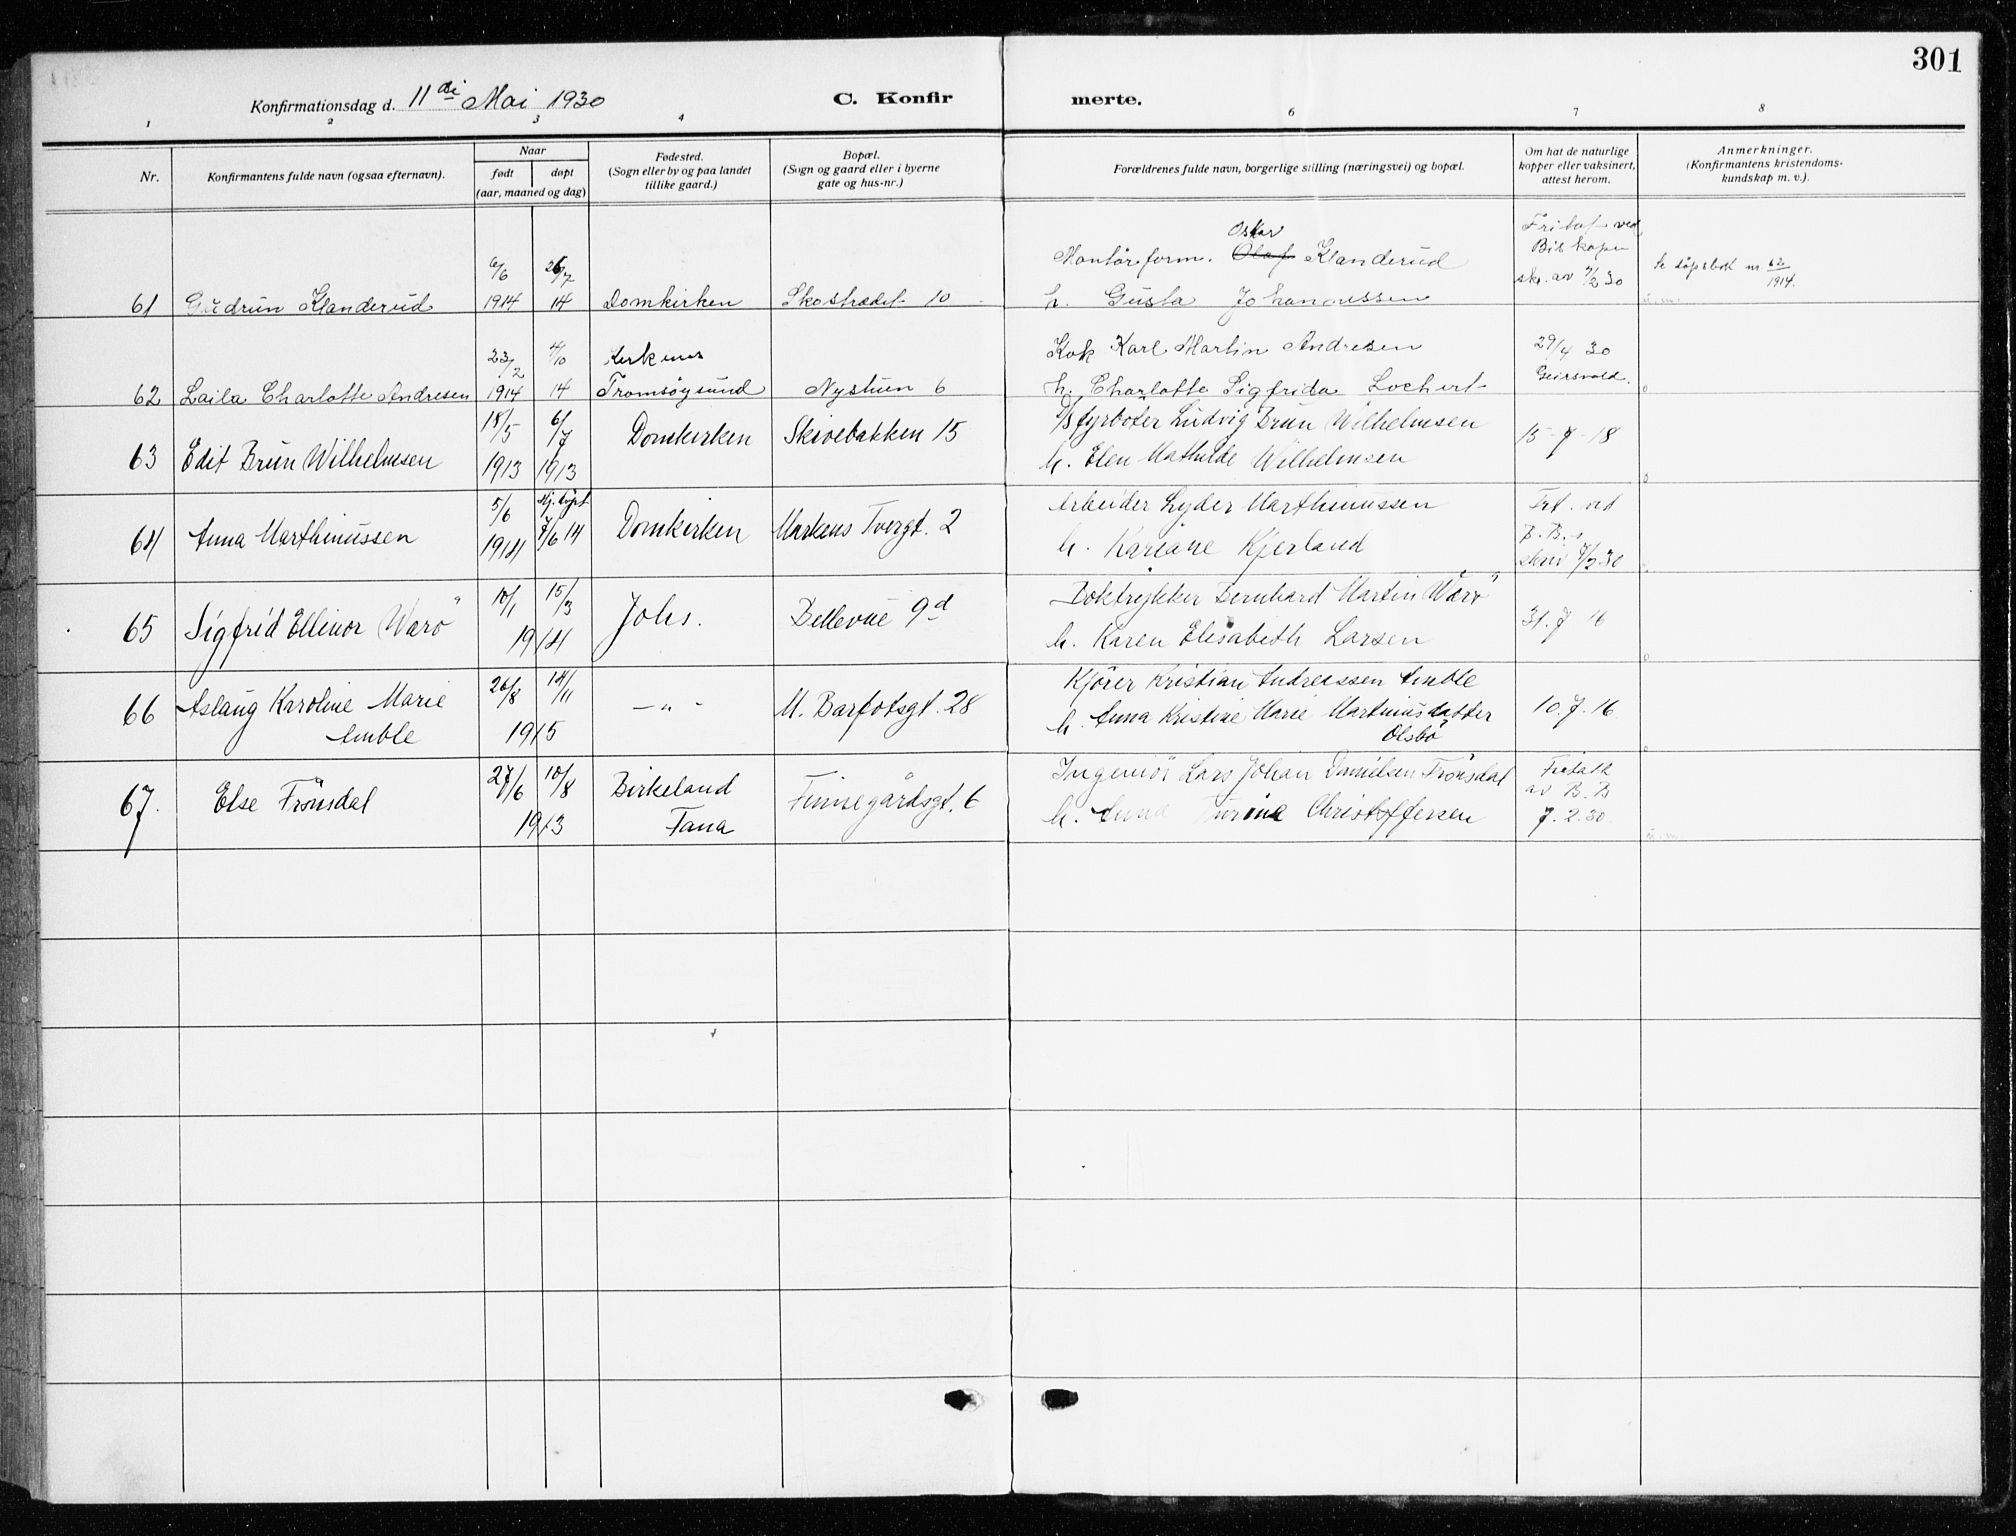 301
Konfirmationsdag d. 11 di Mai 1930
C. Konfir merte.
1 2 3 4 6 7 8
Nr.
Konfirmantens fulde navn (ogsaa efternavn).
Naar
født døpt
(aar, maaned og dag)
Fødested.
(Sogn eller by og paa landet
tillike gaard.)
Bopæl.
(Sogn og gaard eller i byerne
gate og hus-nr.)
Forældrenes fulde navn, borgerlige stilling (næringsvei) og bopæl.
Om hat de naturlige
kopper eller vaksinert,
attest herom.
Anmerkninger.
(Konfirmantens kristendoms-
kundskap m. v.).
Oskar
Montör form. Olaf Klanderud
Fritat ved
Biskopen
skr. av 7/2 30
6/6 26/7
Se döpsbok nr. 62/1914.
61 Gudrun Klanderud 1914 14 Domkirken Skostrædet 10
h. Gusta Johannessen
23/2 4/10 Kirkenes
Kok Karl Martin Andresen
29/4 30
62 Laila Charlotte Andresen 1914 14 Tromsöysund Nystuen 6
h. Charlotte Sigfrida Lochert
Geirsvold.
18/5 6/7
63 Edit Brun Wilhelmsen 1913 1913 Domkirken Skivebakken 15
Fyrböter Ludvig Brun Wilhelmsen
h. Elen Mathilde Wilhelmsen
15-7-18
5/6 Hj. döpt
64 Anna Marthinussen 1914 7/6 14 Domkirken Markens Tvergt. 2
Arbeider Lyder Marthinussen
h. Kariane Kjerland
Frt. ved
B. B.s
skriv 7/2 30
10/1 15/3
65 Sigfrid Ellinor Warö 1914 Johs. Bellevue 9d
Boktrykker Bernhard Martin Warö
h. Karen Elisabeth Larsen
31. 7 16
26/8 14/11
66 Aslaug Karoline Marie
Amble 1915 —„— M. Barfotsgt. 28
Kjörer Kristian Andreassen Amble
h. Anna Kristine Marie Martinusdatter
Olsbö
10. 7. 16
27/6 10/8
67. Else Frönsdal 1913 Birkeland
Fana
Finnegårdsgt. 6
Ingeniör Lars Johan Danielsen Frönsdal
h. Anna Turine Christoffersen
Fritatt
av B. B
7. 2. 30.